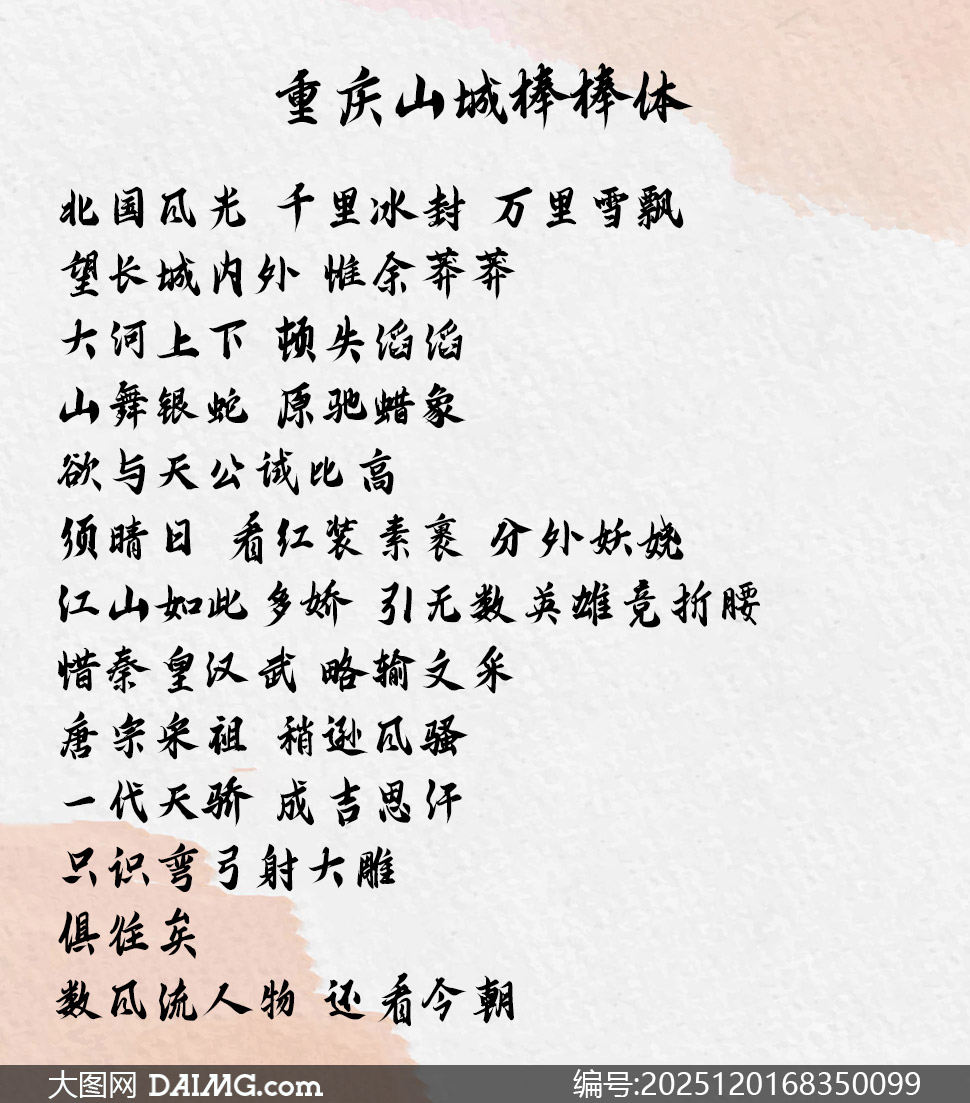 重庆山城棒棒体
北国风光 千里冰封 万里雪飘
望长城内外 惟余莽莽
大河上下 顿失滔滔
山舞银蛇 原驰蜡象
欲与天公试比高
须晴日 看红装素裹 分外妖娆
江山如此多娇 引无数英雄竞折腰
惜秦皇汉武 略输文采
唐宗宋祖 稍逊风骚
一代天骄 成吉思汗
只识弯弓射大雕
俱往矣
数风流人物 还看今朝
大图网 DAIMG.com 编号:2025120168350099